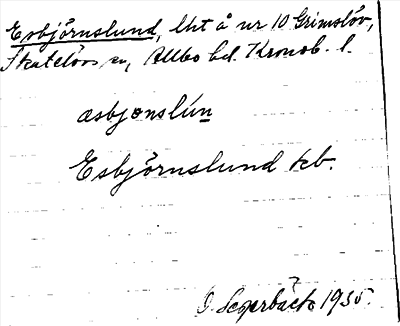 Esbjörnslund, lht å nr 10 Grimslöv,
Skatelövs sn, Allbo hd. Kronob. l.
æsbjənslún
Esbjörnslund kb.
O Segerbäck 1935.